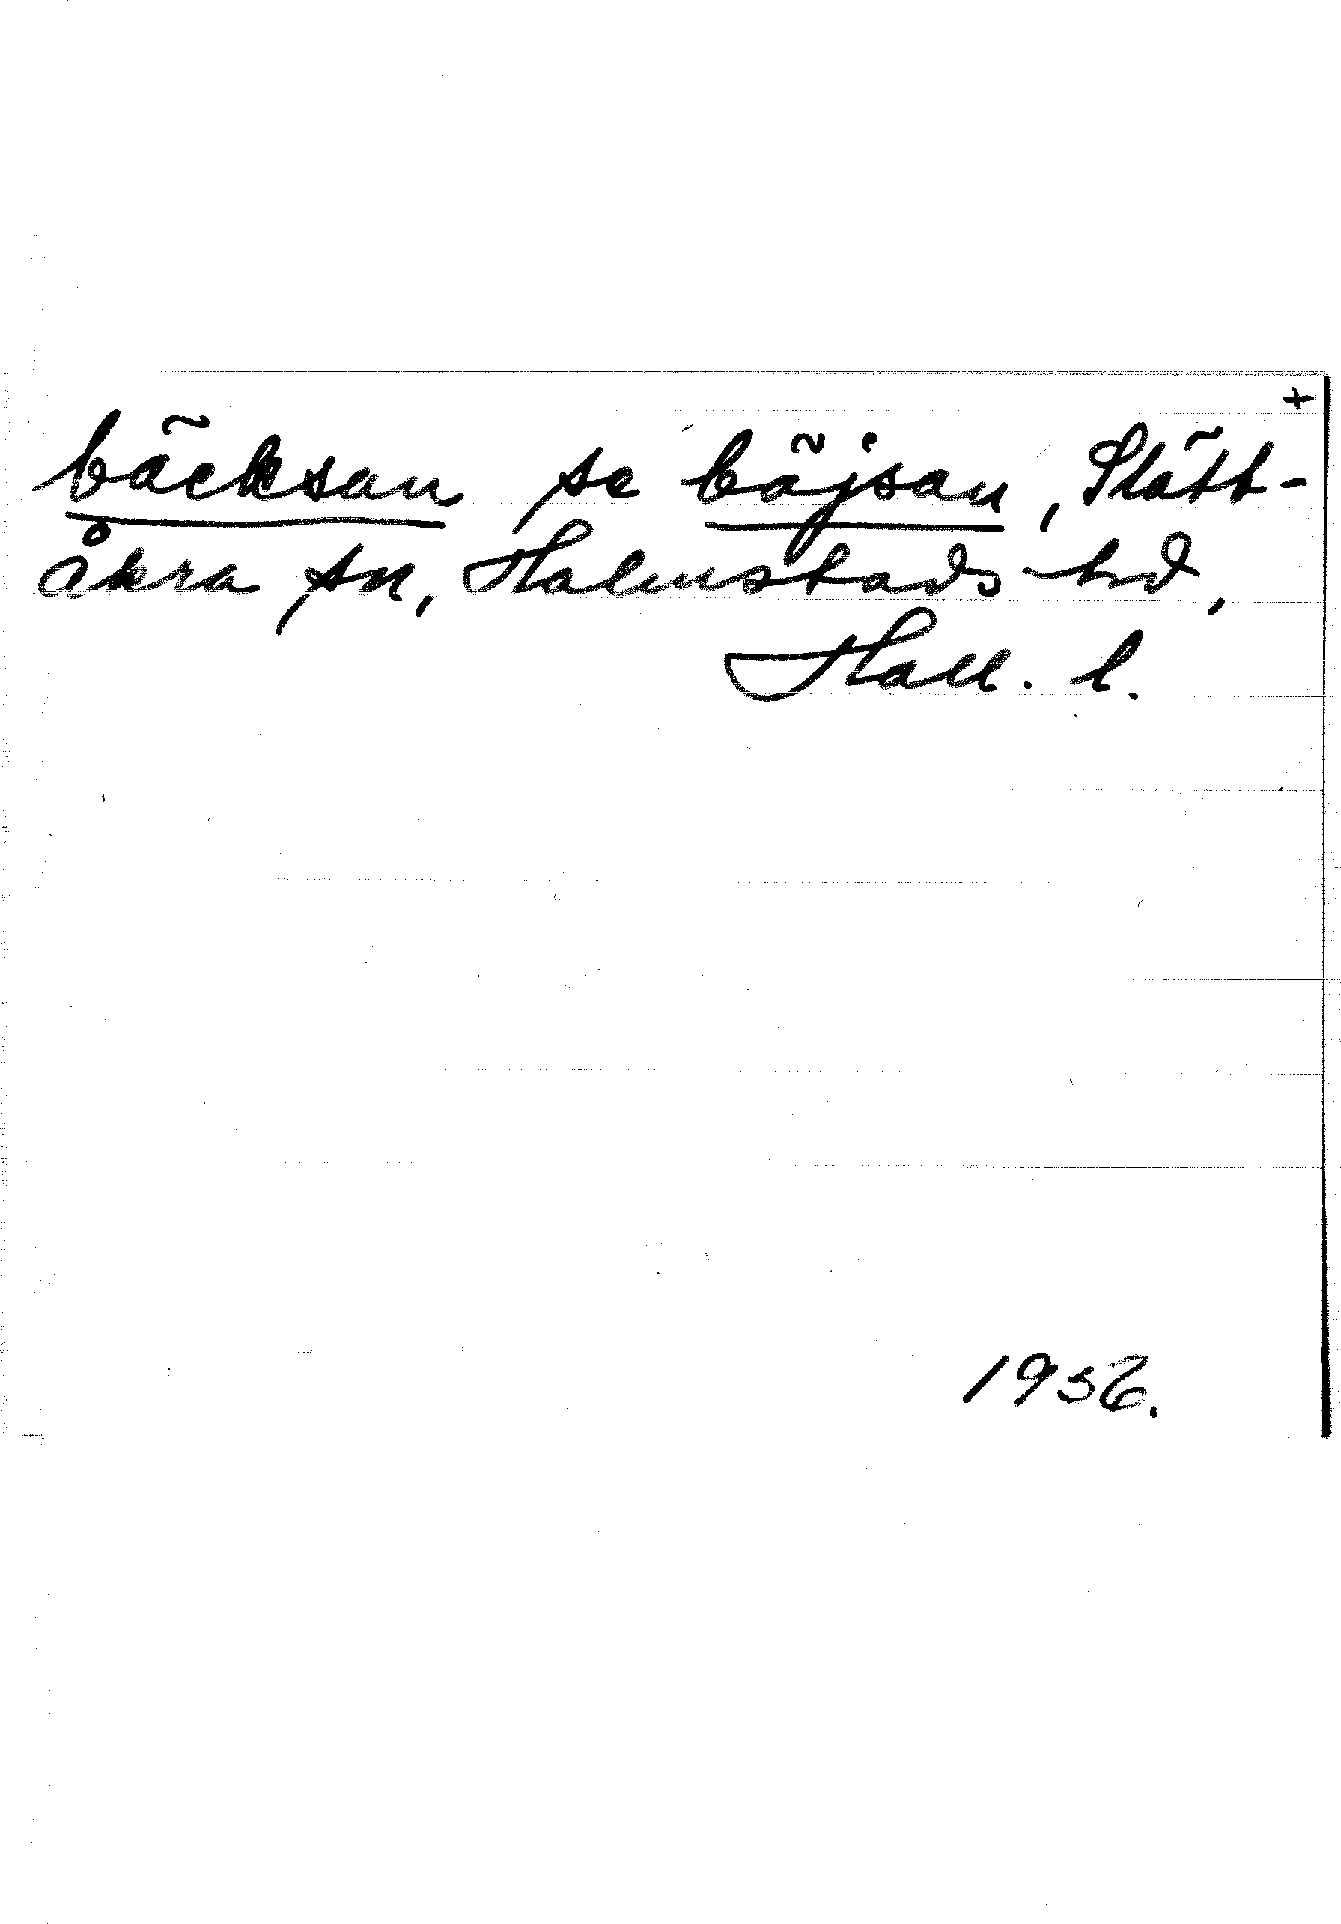 +
bäcksan se böjsan, Slätt-
åkra sn, Halmstads hd,
Hall. l.
1956.